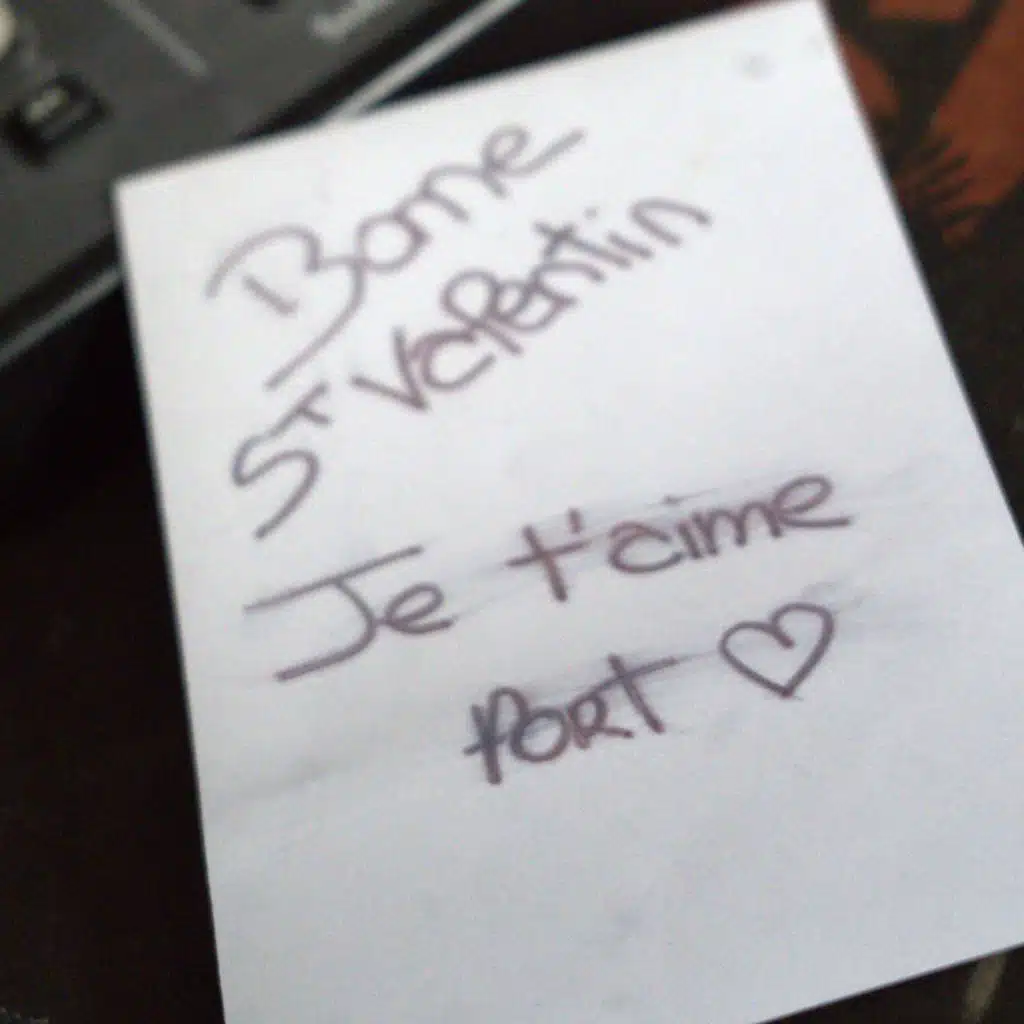 Bonne
St Valentin
Je t'aime
fort ♡